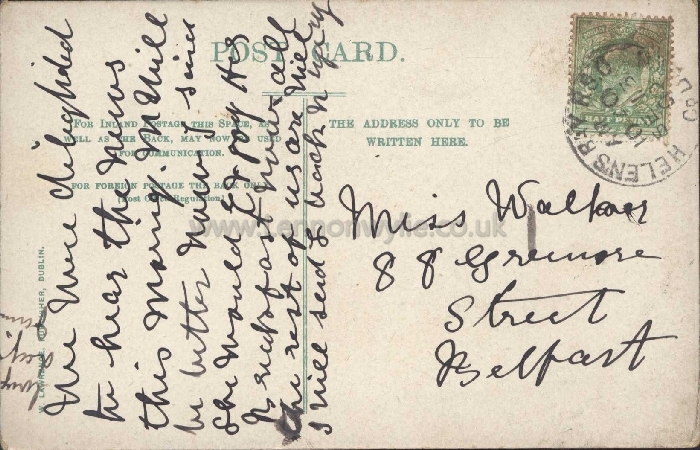 POST CARD.
FOR INLAND POSTAGE THIS SPACE, AS
WELL AS THE BACK, MAY NOW BE USED
FOR COMMUNICATION.
FOR FOREIGN POSTAGE THE BACK ONLY
(Post Office Regulation)
THE ADDRESS ONLY TO BE
WRITTEN HERE.
HALF PENNY
HELENS BAY
W. LAWRENCE, PUBLISHER, DUBLIN.
www.lennonwylie.co.uk
We were delighted
to hear the news
this morning
be better now
She would enjoy her
breakfast
the rest of us are
I will send to
Miss Walker
88 Grenmore
Street
Belfast